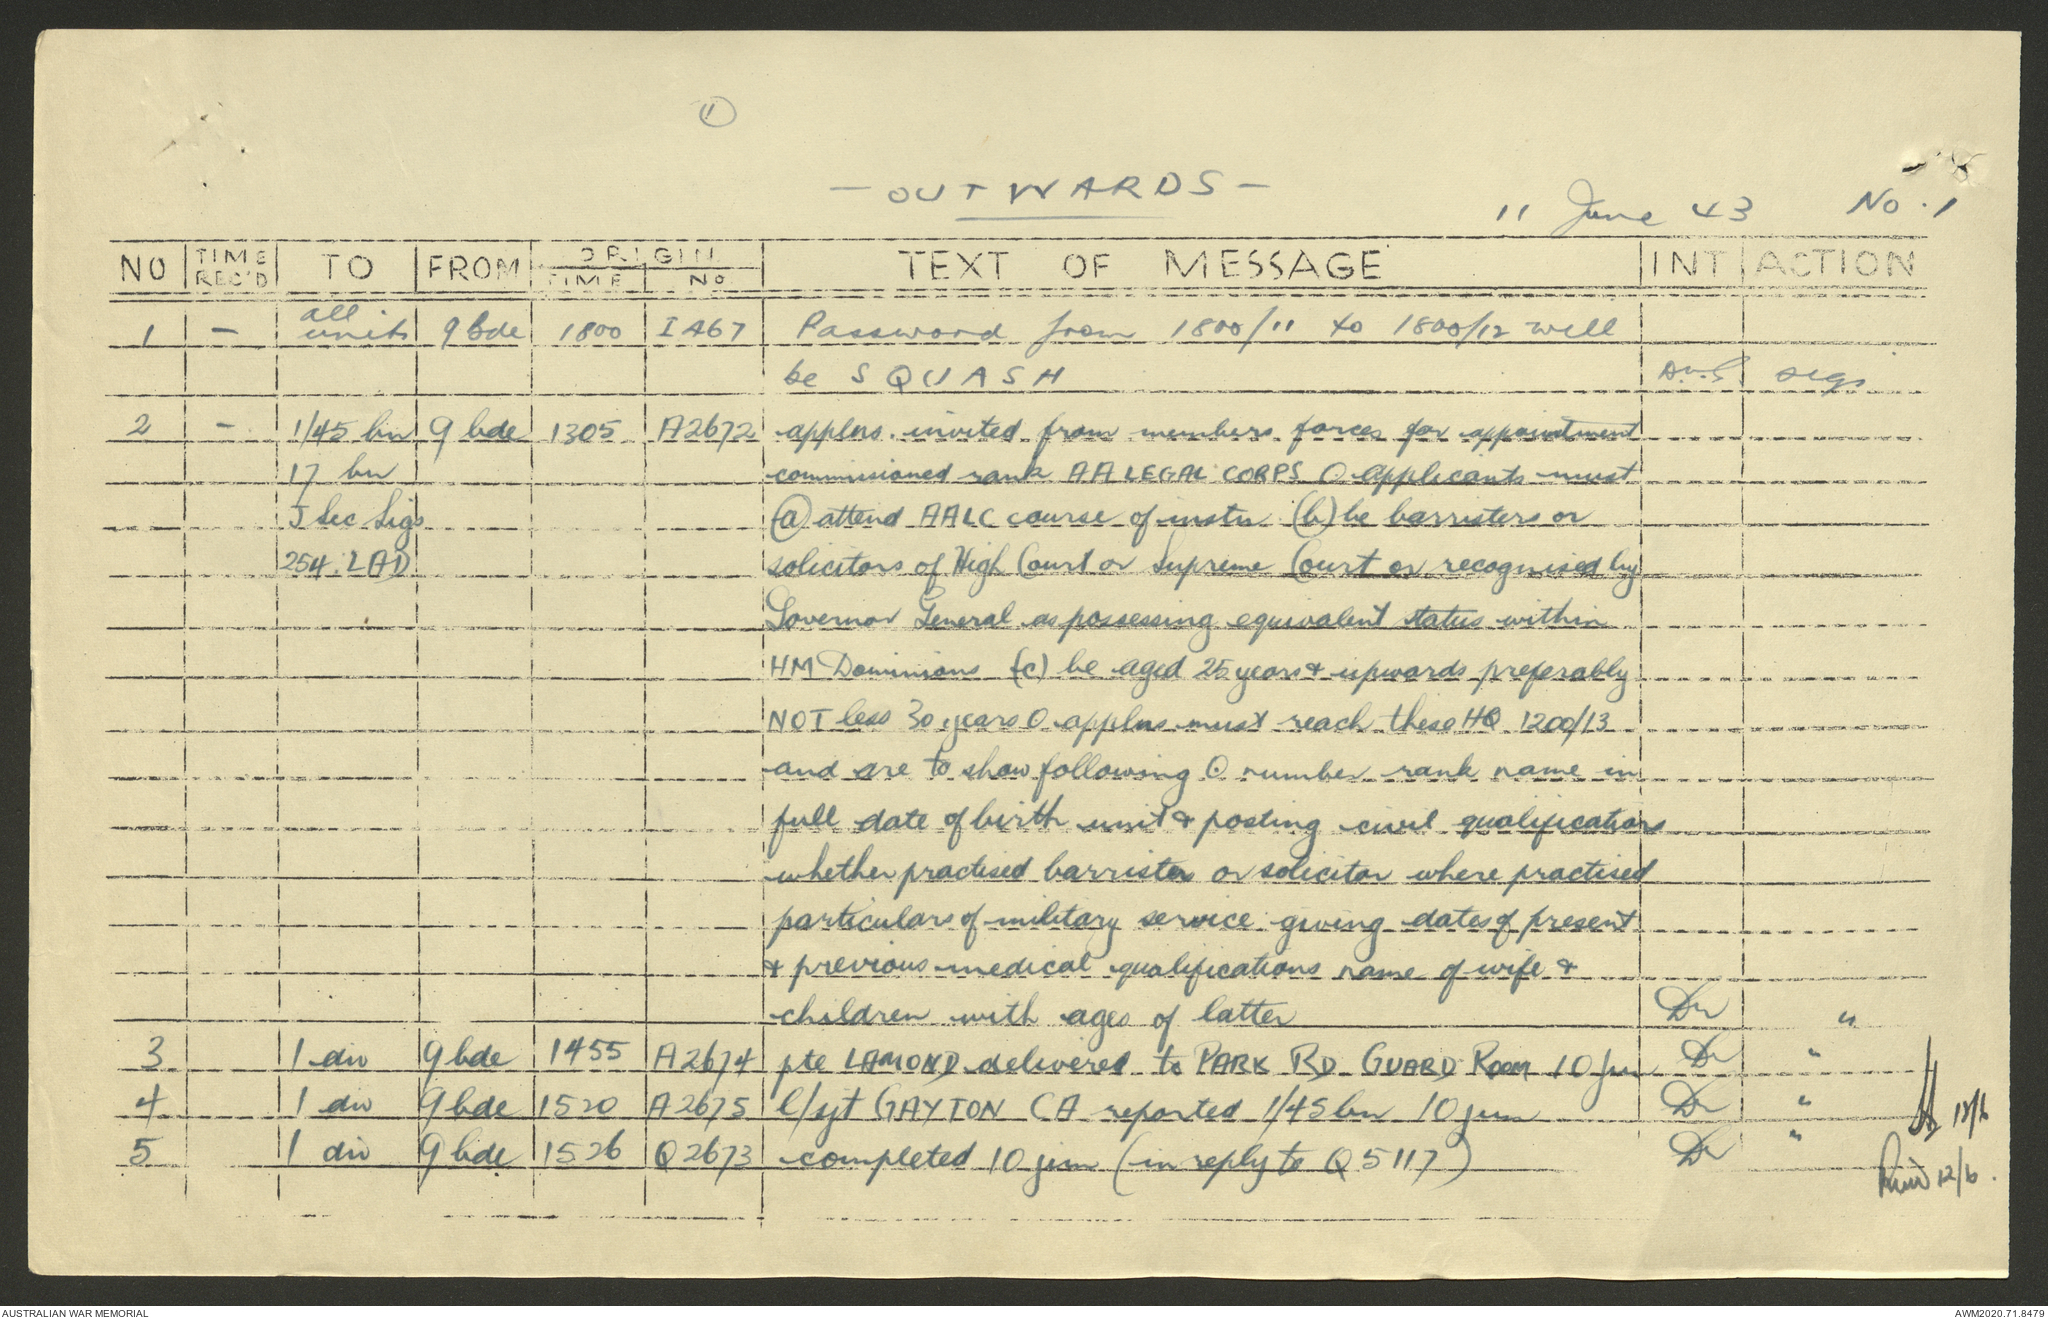 11
- OUTWARDS -
11 June 43 No. 1
NO TIME REC'D TO FROM ORIGIN TIME No TEXT OF MESSAGE INT ACTION
1 - all units 9 bde 1800 I 467 Password from 1800/11 to 1800/12 will
be SQUASH sigs
2 - 1/45 bn 9 bde 1305 A2672 applns. invited from members forces for appointment
17 bn commissioned rank AA LEGAL CORPS O applicants must
J Sec Sigs (a) attend AALC course of instn (b) be barristers or
254 LAD solicitors of High Court or Supreme Court or recognised by
Governor General as possessing equivalent status within
HM Dominions (c) be aged 25 years & upwards preferably
NOT less 30 years O applns must reach these HQ 1200/13
and are to show following O number rank name in
full date of birth unit & posting civil qualifications
whether practised barrister or solicitor where practised
particulars of military service giving dates of present
& previous medical qualifications name of wife &
children with ages of latter "
3 1 div 9 bde 1455 A2674 pte LAMOND delivered to PARK RD GUARD ROOM 10 Jun "
4 1 div 9 bde 1520 A2675 l/sjt GAYTON CA reported 1/45 bn 10 jun "
12/6
5 1 div 9 bde 1526 Q2673 completed 10 jun (in reply to Q5117) "
12/6.
AUSTRALIAN WAR MEMORIAL AWM2020.71.8479